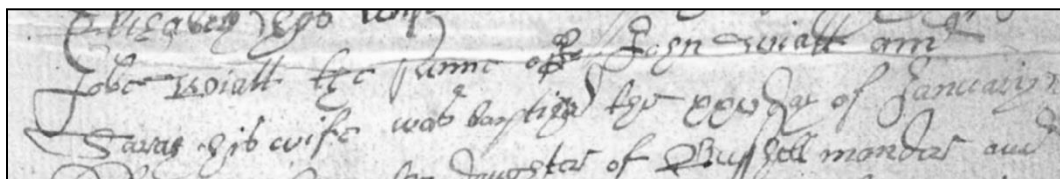 Elizabeth his wife
Jobe Wiatt the sunne of John Wiatt and
Sarah his wife was baptized the xxv day of January
daughter of Bussell monder and